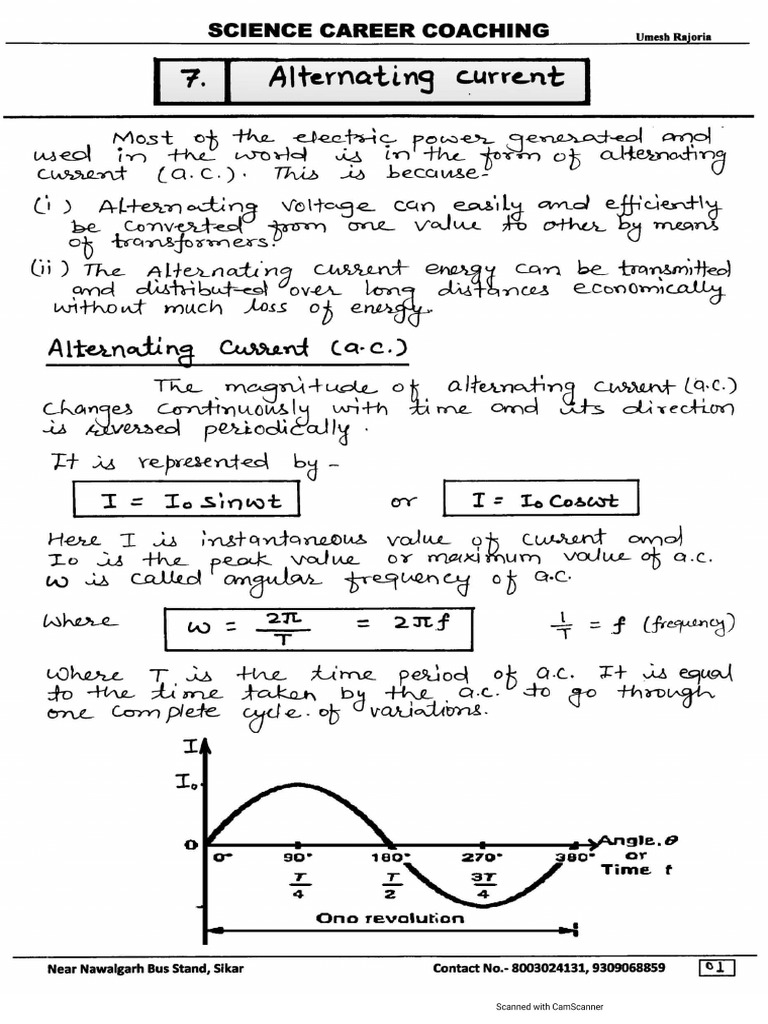 SCIENCE CAREER COACHING
Umesh Rajoria
7. Alternating current
Most of the electric power generated and
used in the world is in the form of alternating
current (a.c.). This is because-
(i) Alternating voltage can easily and efficiently
be converted from one value to other by means
of transformers.
(ii) The Alternating current energy can be transmitted
and distributed over long distances economically
without much loss of energy.
Alternating Current (a.c.)
The magnitude of alternating current (a.c.)
changes continuously with time and its direction
is reversed periodically.
It is represented by -
I = I₀ sinωt or I = I₀ Cosωt
Here I is instantaneous value of current and
I₀ is the peak value or maximum value of a.c.
ω is called angular frequency of a.c.
where ω = 2π/T = 2πf 1/T = f (frequency)
where T is the time period of a.c. It is equal
to the time taken by the a.c. to go through
one complete cycle of variations.
I
I₀
0
0° 90° 180° 270° 380°
Angle, θ
or
Time t
T/4 T/2 3T/4
Ono revolution
Near Nawalgarh Bus Stand, Sikar Contact No.- 8003024131, 9309068859 01
Scanned with CamScanner